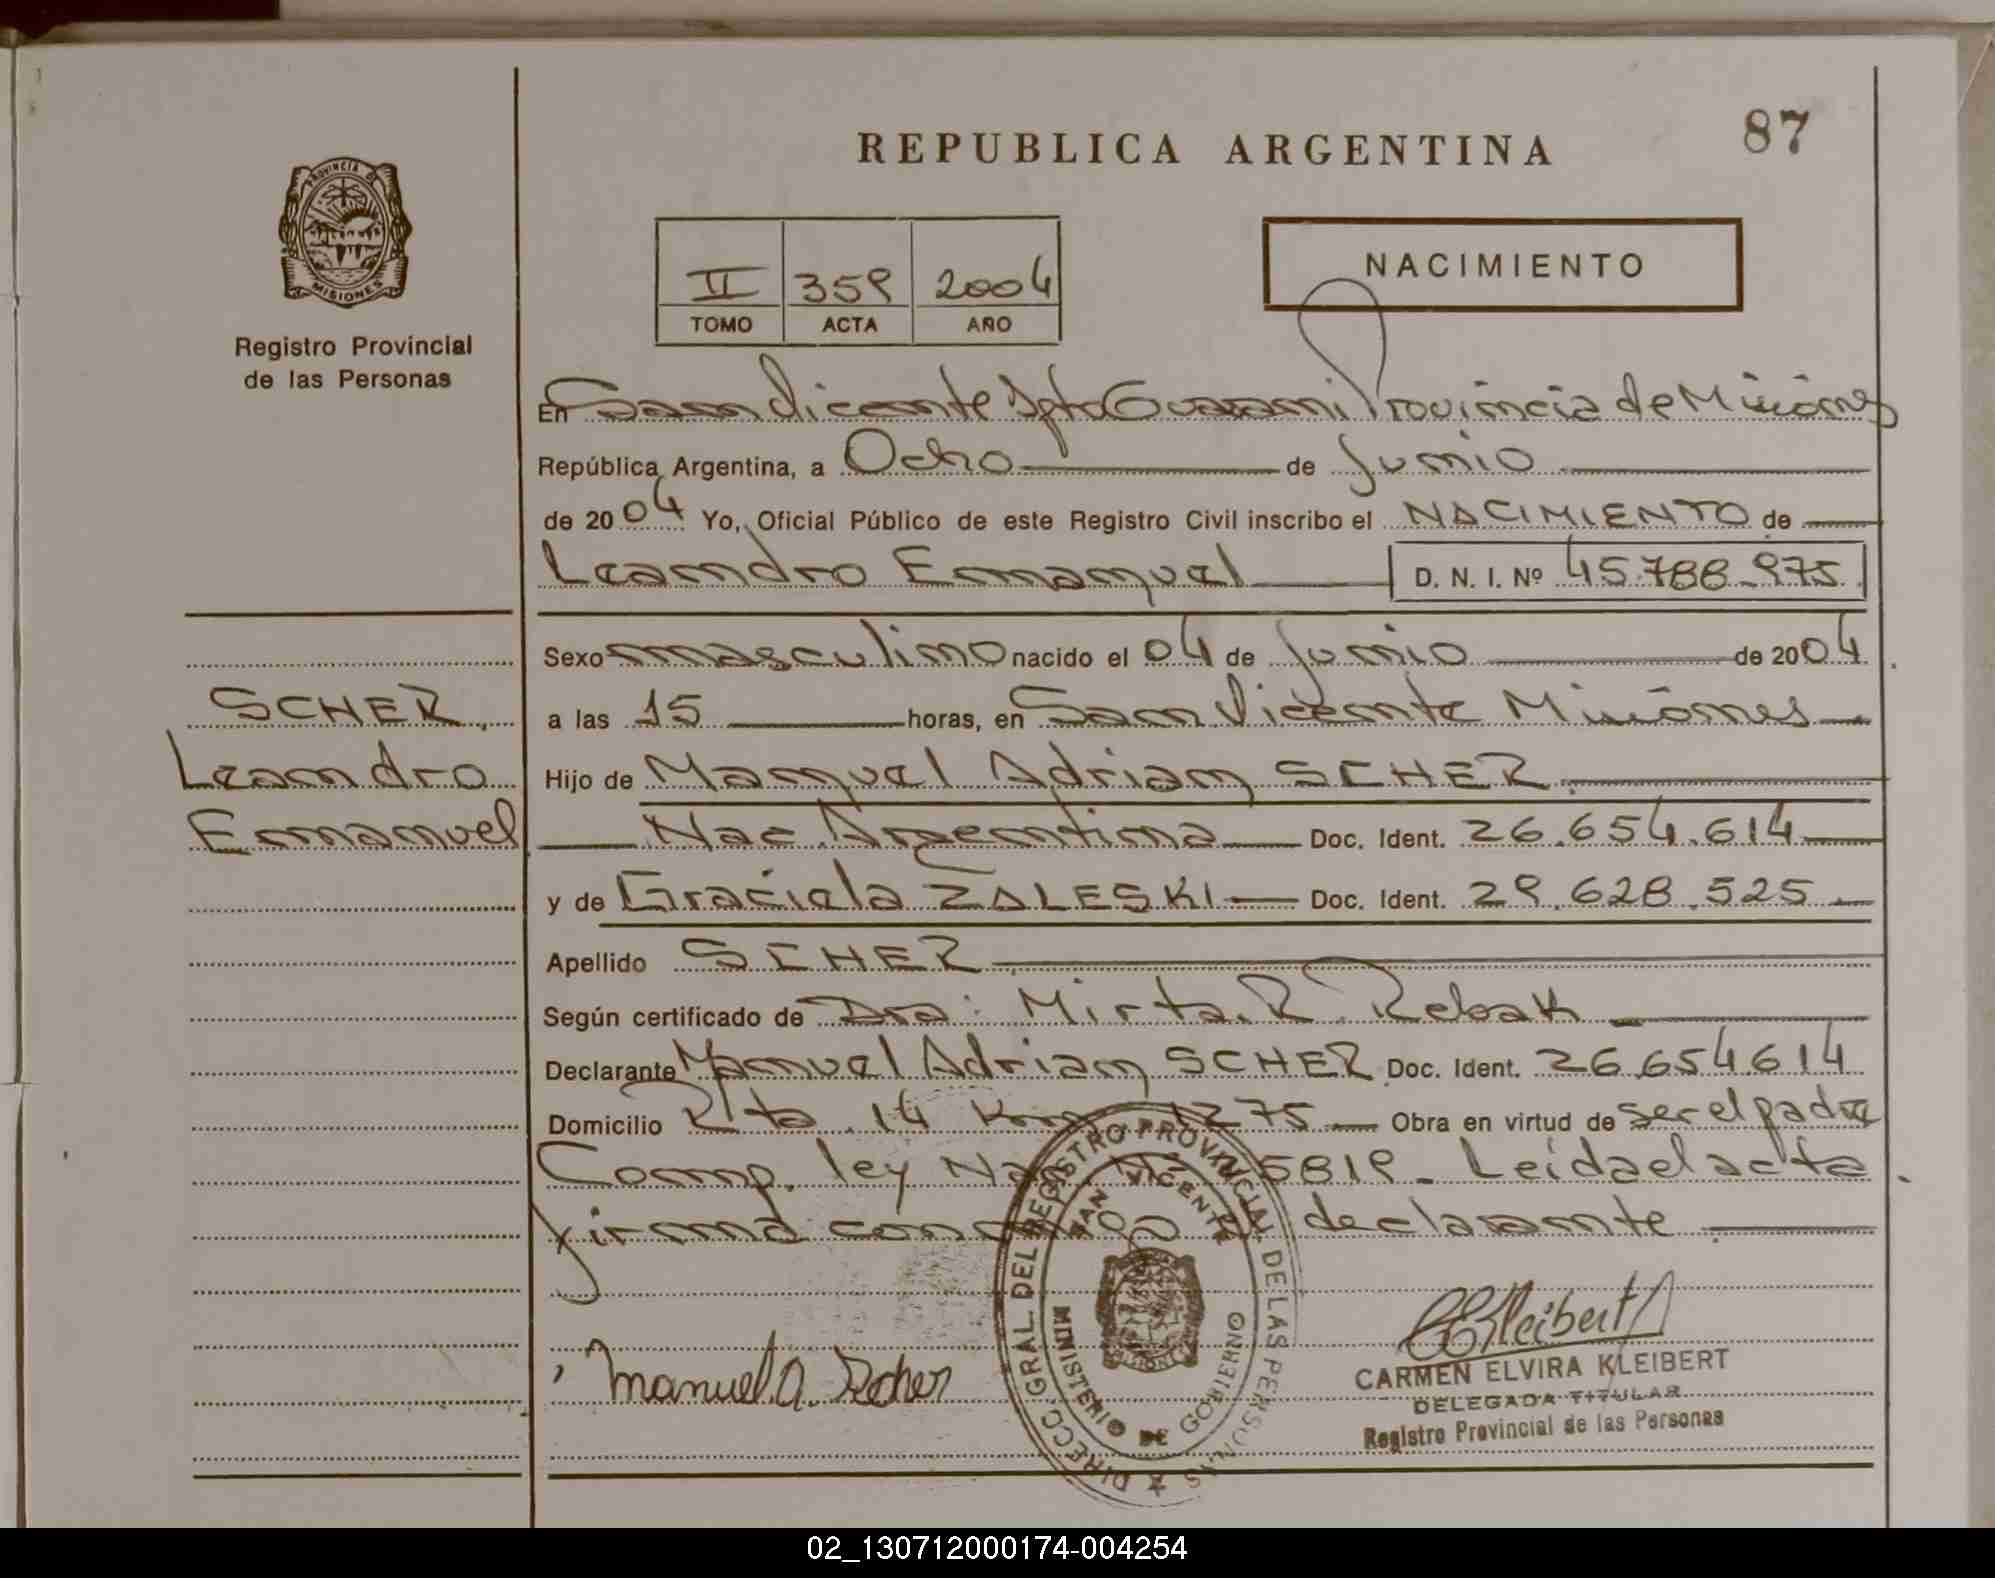 87
REPUBLICA ARGENTINA
PROVINCIA DE
MISIONES
Registro Provincial
de las Personas
II 359 2004
TOMO ACTA AÑO
NACIMIENTO
En San Vicente Dpto Guarani Provincia de Misiones
República Argentina, a Ocho de Junio
de 2004 Yo, Oficial Público de este Registro Civil inscribo el NACIMIENTO de
Leandro Emanuel D. N. I. Nº 45.788.975
Sexo masculino nacido el 04 de Junio de 2004
SCHER
a las 15 horas, en San Vicente Misiones
Leandro
Hijo de Manuel Adrian SCHER
Emanuel
Nac. Argentina Doc. Ident. 26.654.614
y de Graciela ZALESKI Doc. Ident. 29.628.525
Apellido SCHER
Según certificado de Dra: Mirta. R. Rebak
Declarante Manuel Adrian SCHER Doc. Ident. 26.654.614
Domicilio Rta. 14 Km 1275 Obra en virtud de ser el padre
Comp. ley Nac. 5819 - Leida el acta
firma declarante
DIRECC. GRAL. DEL REGISTRO PROVINCIAL DE LAS PERSONAS
SAN VICENTE
MINISTERIO DE GOBIERNO
Manuel A. Scher
CEKleibert
CARMEN ELVIRA KLEIBERT
DELEGADA TITULAR
Registro Provincial de las Personas
02_130712000174-004254